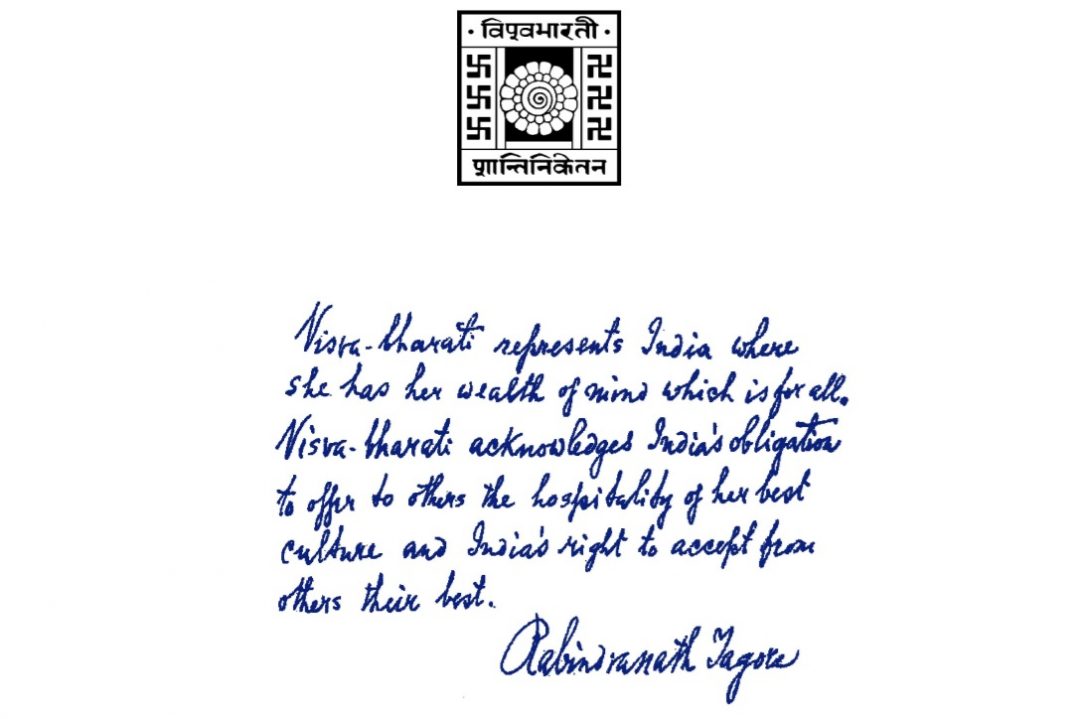 • विश्वभारती •
शान्तिनिकेतन
Visva-bharati represents India where
she has her wealth of mind which is for all.
Visva-bharati acknowledges India's obligation
to offer to others the hospitality of her best
culture and India's right to accept from
others their best.
Rabindranath Tagore